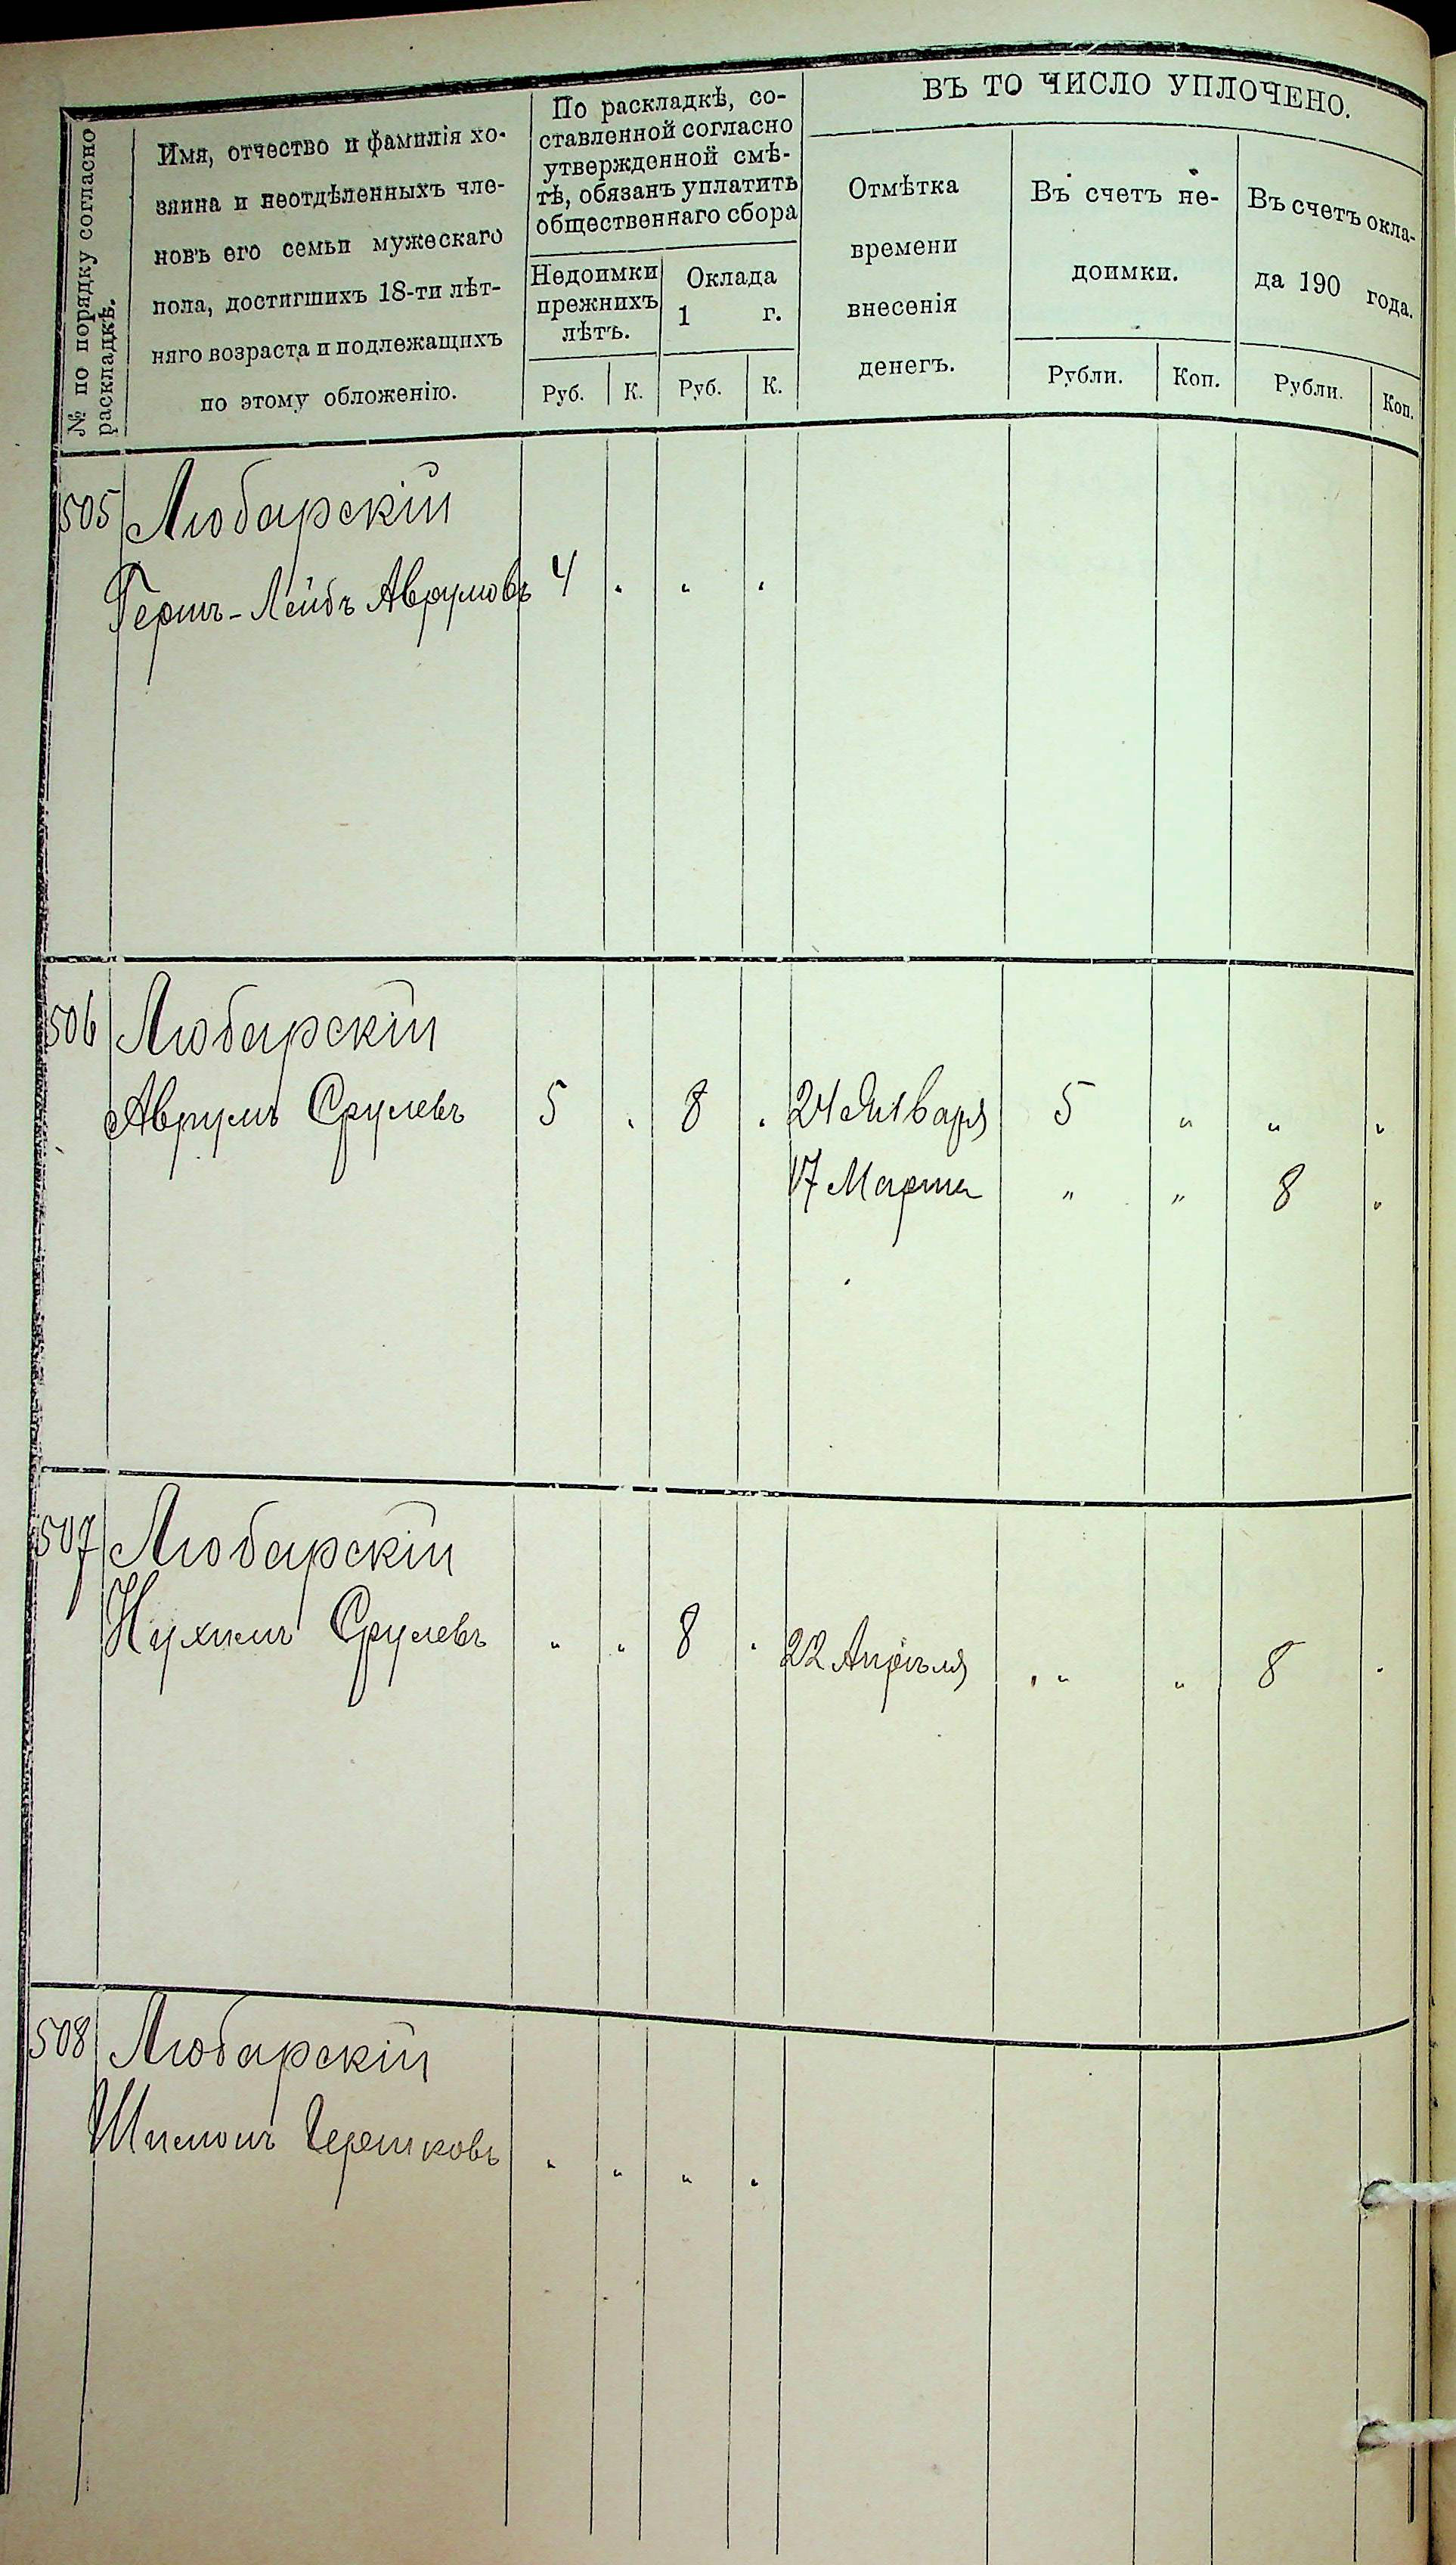 № по порядку согласно
раскладкѣ.
Имя, отчество и фамилія хо-
заина и неотдѣленныхъ чле-
новъ его семьи мужескаго
пола, достигшихъ 18-ти лѣт-
няго возраста и подлежащихъ
по этому обложенію.
По раскладкѣ, со-
ставленной согласно
утвержденной смѣ-
тѣ, обязанъ уплатить
общественнаго сбора
Недоимки
прежнихъ
лѣтъ.
Оклада
1 г.
Руб. К. Руб. К.
ВЪ ТО ЧИСЛО УПЛОЧЕНО.
Отмѣтка
времени
внесенія
денегъ.
Въ счетъ не-
доимки.
Рубли. Коп.
Въ счетъ окла-
да 190 года.
Рубли. Коп.
505 Любарскій
Гершъ-Лейбъ Аврумовъ 4 " " "
506 Любарскій
Аврумъ Срулевъ 5 " 8 " 24 Января 5 " " "
17 Марта " " 8 "
507 Любарскій
Нухимъ Срулевъ " " 8 " 22 Апрѣля " " 8 "
508 Любарскій
Шимонъ Гершковъ " " " "